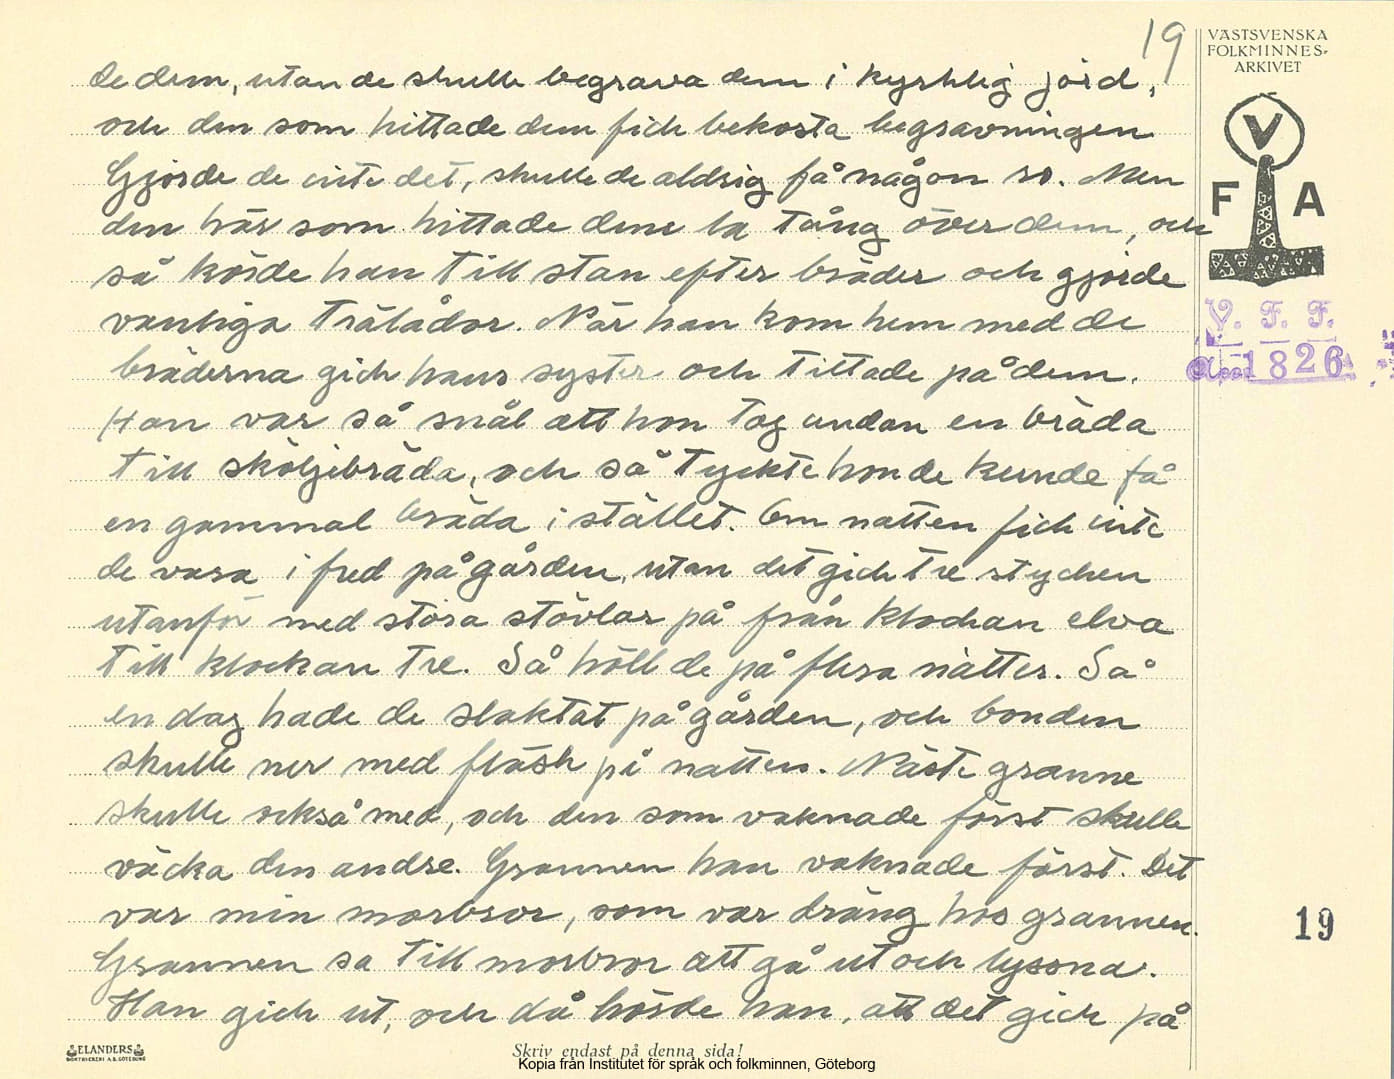 19
VÄSTSVENSKA
FOLKMINNES-
ARKIVET
V
F A
V. F. F.
1826
de dem, utan de skulle begrava dem i kyrklig jord,
och den som hittade dem fick bekosta begravningen
Gjorde de inte det, skulle de aldrig få någon ro. Men
den här som hittade dem la tång över dem, och
så körde han till stan efter bräder och gjorde
vanliga trälådor. När han kom hem med de
bräderna gick hans syster och tittade på dem.
Hon var så snål att hon tog undan en bräda
till sköljebräda, och så tyckte hon de kunde få
en gammal bräda i stället. Om natten fick inte
de vara i fred på gården, utan det gick tre stycken
utanför med stora stövlar på från klockan elva
till klockan tre. Så höll de på flera nätter. Så
en dag hade de slaktat på gården, och bonden
skulle ner med fläsk på natten. Näste granne
skulle också med, och den som vaknade först skulle
väcka den andre. Grannen han vaknade först. Det
var min morbror, som var dräng hos grannen.
Grannen sa till morbror att gå ut och lyssna.
Han gick ut, och då hörde han, att det gick på
19
ELANDERS
BOKTRYCKERI A.B. GÖTEBORG
Skriv endast på denna sida!
Kopia från Institutet för språk och folkminnen, Göteborg